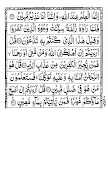 إِنَّمَا الْعِلْمُ عِنْدَ اللَّهِ وَإِنَّمَا أَنَا نَذِيرٌ مُبِينٌ
فَلَمَّا رَأَوْهُ زُلْفَةً سِيئَتْ وُجُوهُ الَّذِينَ كَفَرُوا
وَقِيلَ هَذَا الَّذِي كُنْتُمْ بِهِ تَدَّعُونَ قُلْ
أَرَأَيْتُمْ إِنْ أَهْلَكَنِيَ اللَّهُ وَمَنْ مَعِيَ أَوْ رَحِمَنَا
فَمَنْ يُجِيرُ الْكَافِرِينَ مِنْ عَذَابٍ أَلِيمٍ قُلْ هُوَ
الرَّحْمَنُ آمَنَّا بِهِ وَعَلَيْهِ تَوَكَّلْنَا فَسَتَعْلَمُونَ مَنْ
هُوَ فِي ضَلَالٍ مُبِينٍ قُلْ أَرَأَيْتُمْ إِنْ أَصْبَحَ
مَاؤُكُمْ غَوْرًا فَمَنْ يَأْتِيكُمْ بِمَاءٍ مَعِينٍ